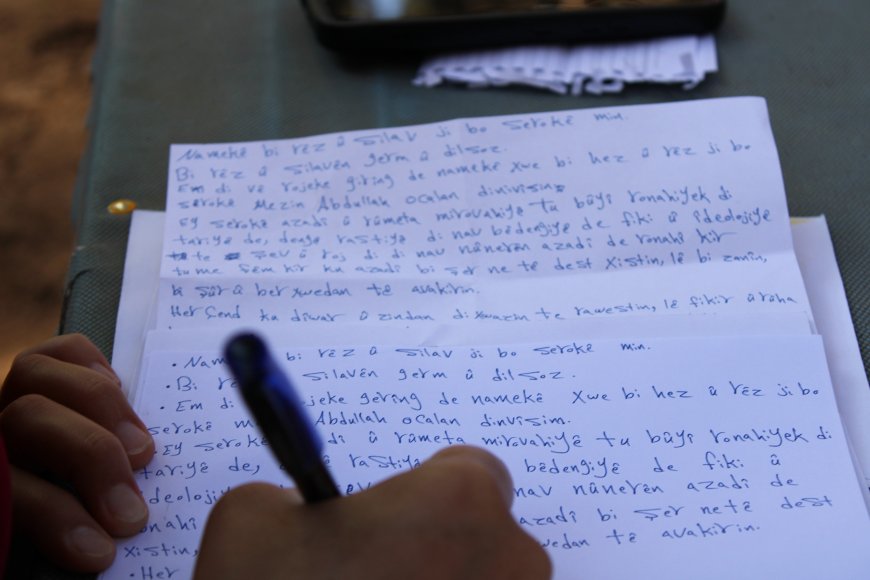 Namekê bi rêz û silav ji bo serokê min.
Bi rêz û silavên germ û dilsoz.
Em di vê rojeke giring de namekê xwe bi hez û rêz ji bo
serokê mezin Abdullah ocalan dinivisin
Ey serokê azadî û rûmeta mirovahiyê tu bûyî ronahiyek di
tariyê de, denge rastiyê di nav bêdengiyê de fikî û îdeolojiyê
te şev û roj di di nav nûnerên azadî de ronahî kir
tu me fêm kir ku azadî bi şer ne tê dest xistin, lê bi zanîn,
û ber xwedan tê avakirin.
Her çend ku dîwar û zindan di xwazin te rawestin, lê fikir û roha
• Nam bi rêz û silav ji bo serokê min.
• Bi rê silavên germ û dilsoz.
• Em di jeke gering de namekê xwe bi hez û rêz ji bo
serokê m Abdullah ocalan dinvîsim.
Ey serokê dî û rûmeta mirvahiyê tu bûyî ronahiyek di
tariyê de, rastiyê bêdengiyê de fikî û
ideolojiy nav nûnerên azadî de
onahî azadî bi şer netê dest
xistin, wedan tê avakirin.
• Her